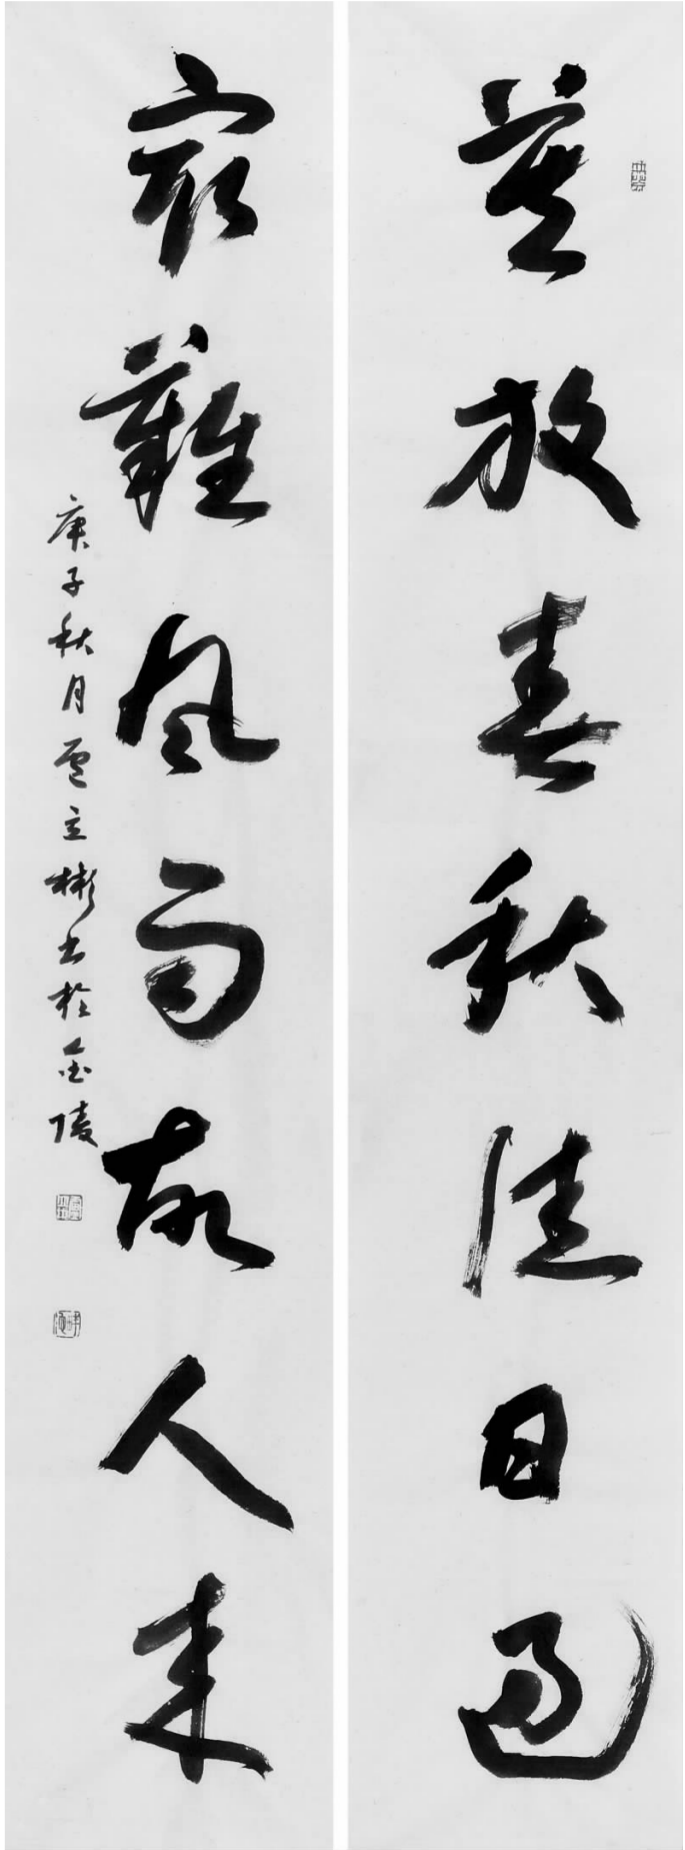 莫放春秋佳日過
最難風雨故人來
庚子秋月雲立彬書於金陵